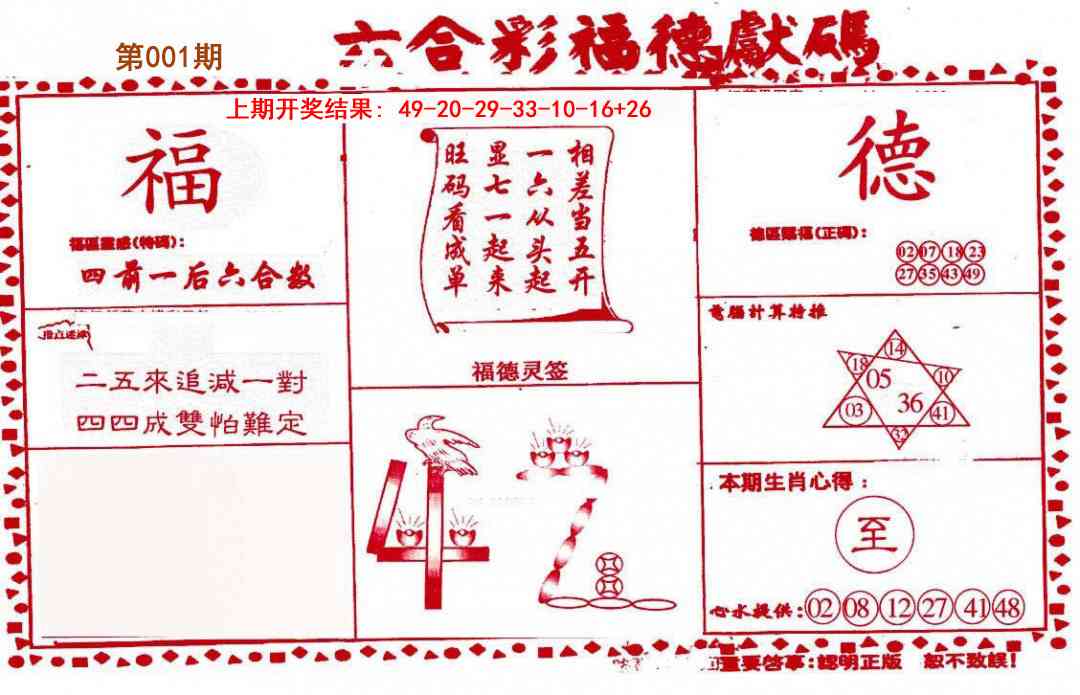 六合彩福德獻碼
第001期
上期开奖结果: 49-20-29-33-10-16+26
福
福區靈感(特碼):
四前一后六合数
二五來追減一對
四四成雙怕難定
相差当五开
一六从头起
显七一起来
旺码看成单
福德灵签
德
德區賜福(正碼):
02 07 18 23
27 35 43 49
電腦計算特推
14
18 10
05
03 36 41
32
本期生肖心得:
至
心水提供: 02 08 12 27 41 48
重要啓事:認明正版 恕不致誤!